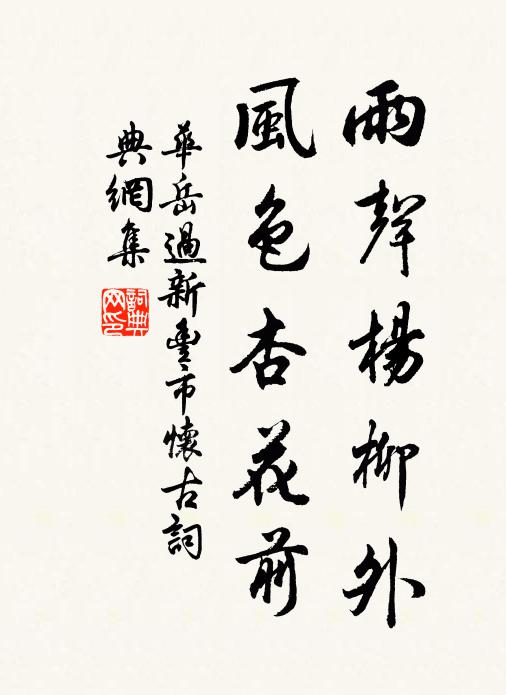 雨聲楊柳外
風色杏花前
華岳過新豐市懷古詞
典網集
詞典
网印